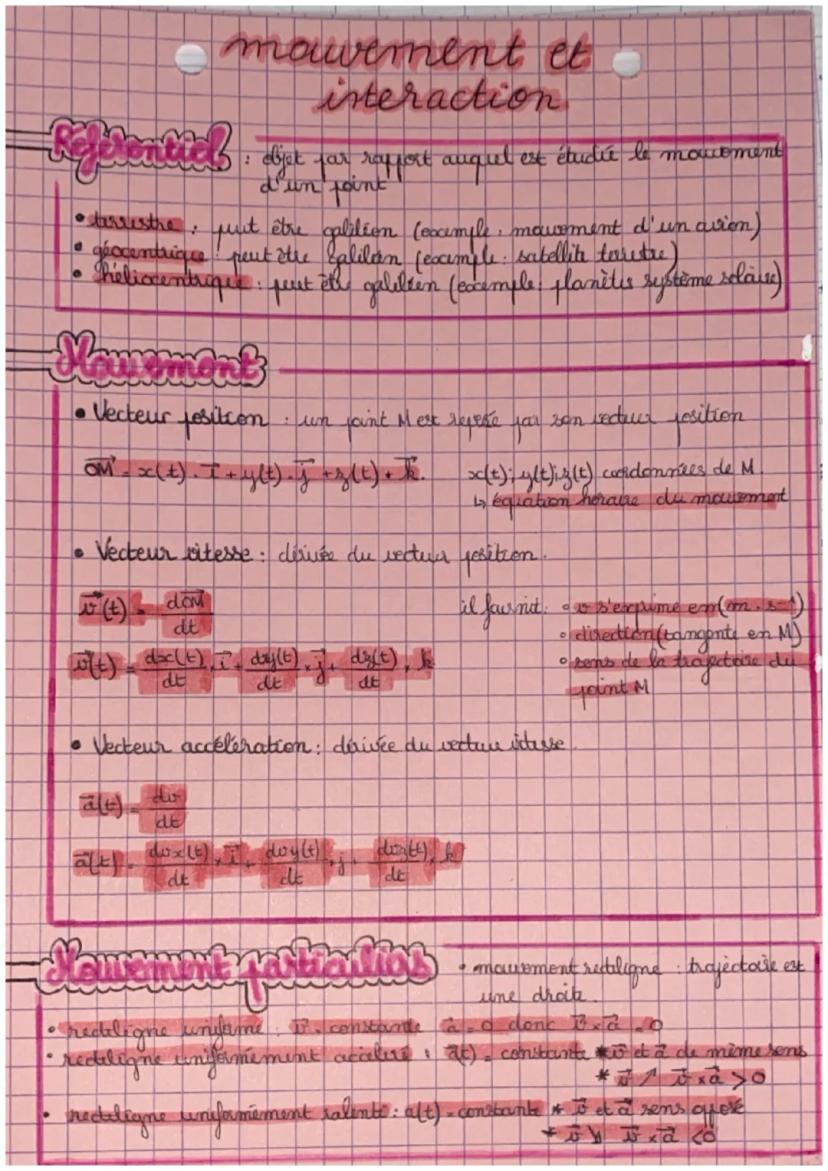 mouvement et
interaction
Référentiel : objet par rapport auquel est étudié le mouvement
d'un point
• terrestre : peut être galiléen (exemple : mouvement d'un avion)
• géocentrique : peut être galiléen (exemple : satellite terrestre)
• héliocentrique : peut être galiléen (exemple : planètes système solaire)
Mouvement
• Vecteur position : un point M est repéré par son vecteur position
OM⃗ = x(t) . i⃗ + y(t) . j⃗ + z(t) + k⃗. x(t) ; y(t) ; z(t) coordonnées de M.
↳ équation horaire du mouvement
• Vecteur vitesse : dérivée du vecteur position.
v⃗(t) = dOM⃗/dt il fournit : • v s'exprime en (m . s⁻¹)
• direction (tangente en M)
v⃗(t) = dx(t)/dt × i⃗ + dy(t)/dt × j⃗ + dz(t)/dt × k • sens de la trajectoire du
point M
• Vecteur accélération : dérivée du vecteur vitesse.
a⃗(t) = dv/dt
a⃗(t) = dvx(t)/dt × i⃗ + dvy(t)/dt × j + dvz(t)/dt × k
Mouvement particuliers • mouvement rectiligne : trajectoire est
une droite.
• rectiligne uniforme : v⃗ = constante a⃗ = 0 donc v⃗ × a⃗ = 0
• rectiligne uniformément accéléré : a⃗(t) = constante * v⃗ et a⃗ de même sens
* v⃗ ↗ v⃗ × a⃗ > 0
• rectiligne uniformément ralenti : a(t) = constante * v⃗ et a⃗ sens opposé
* v⃗ ↘ v⃗ × a⃗ < 0